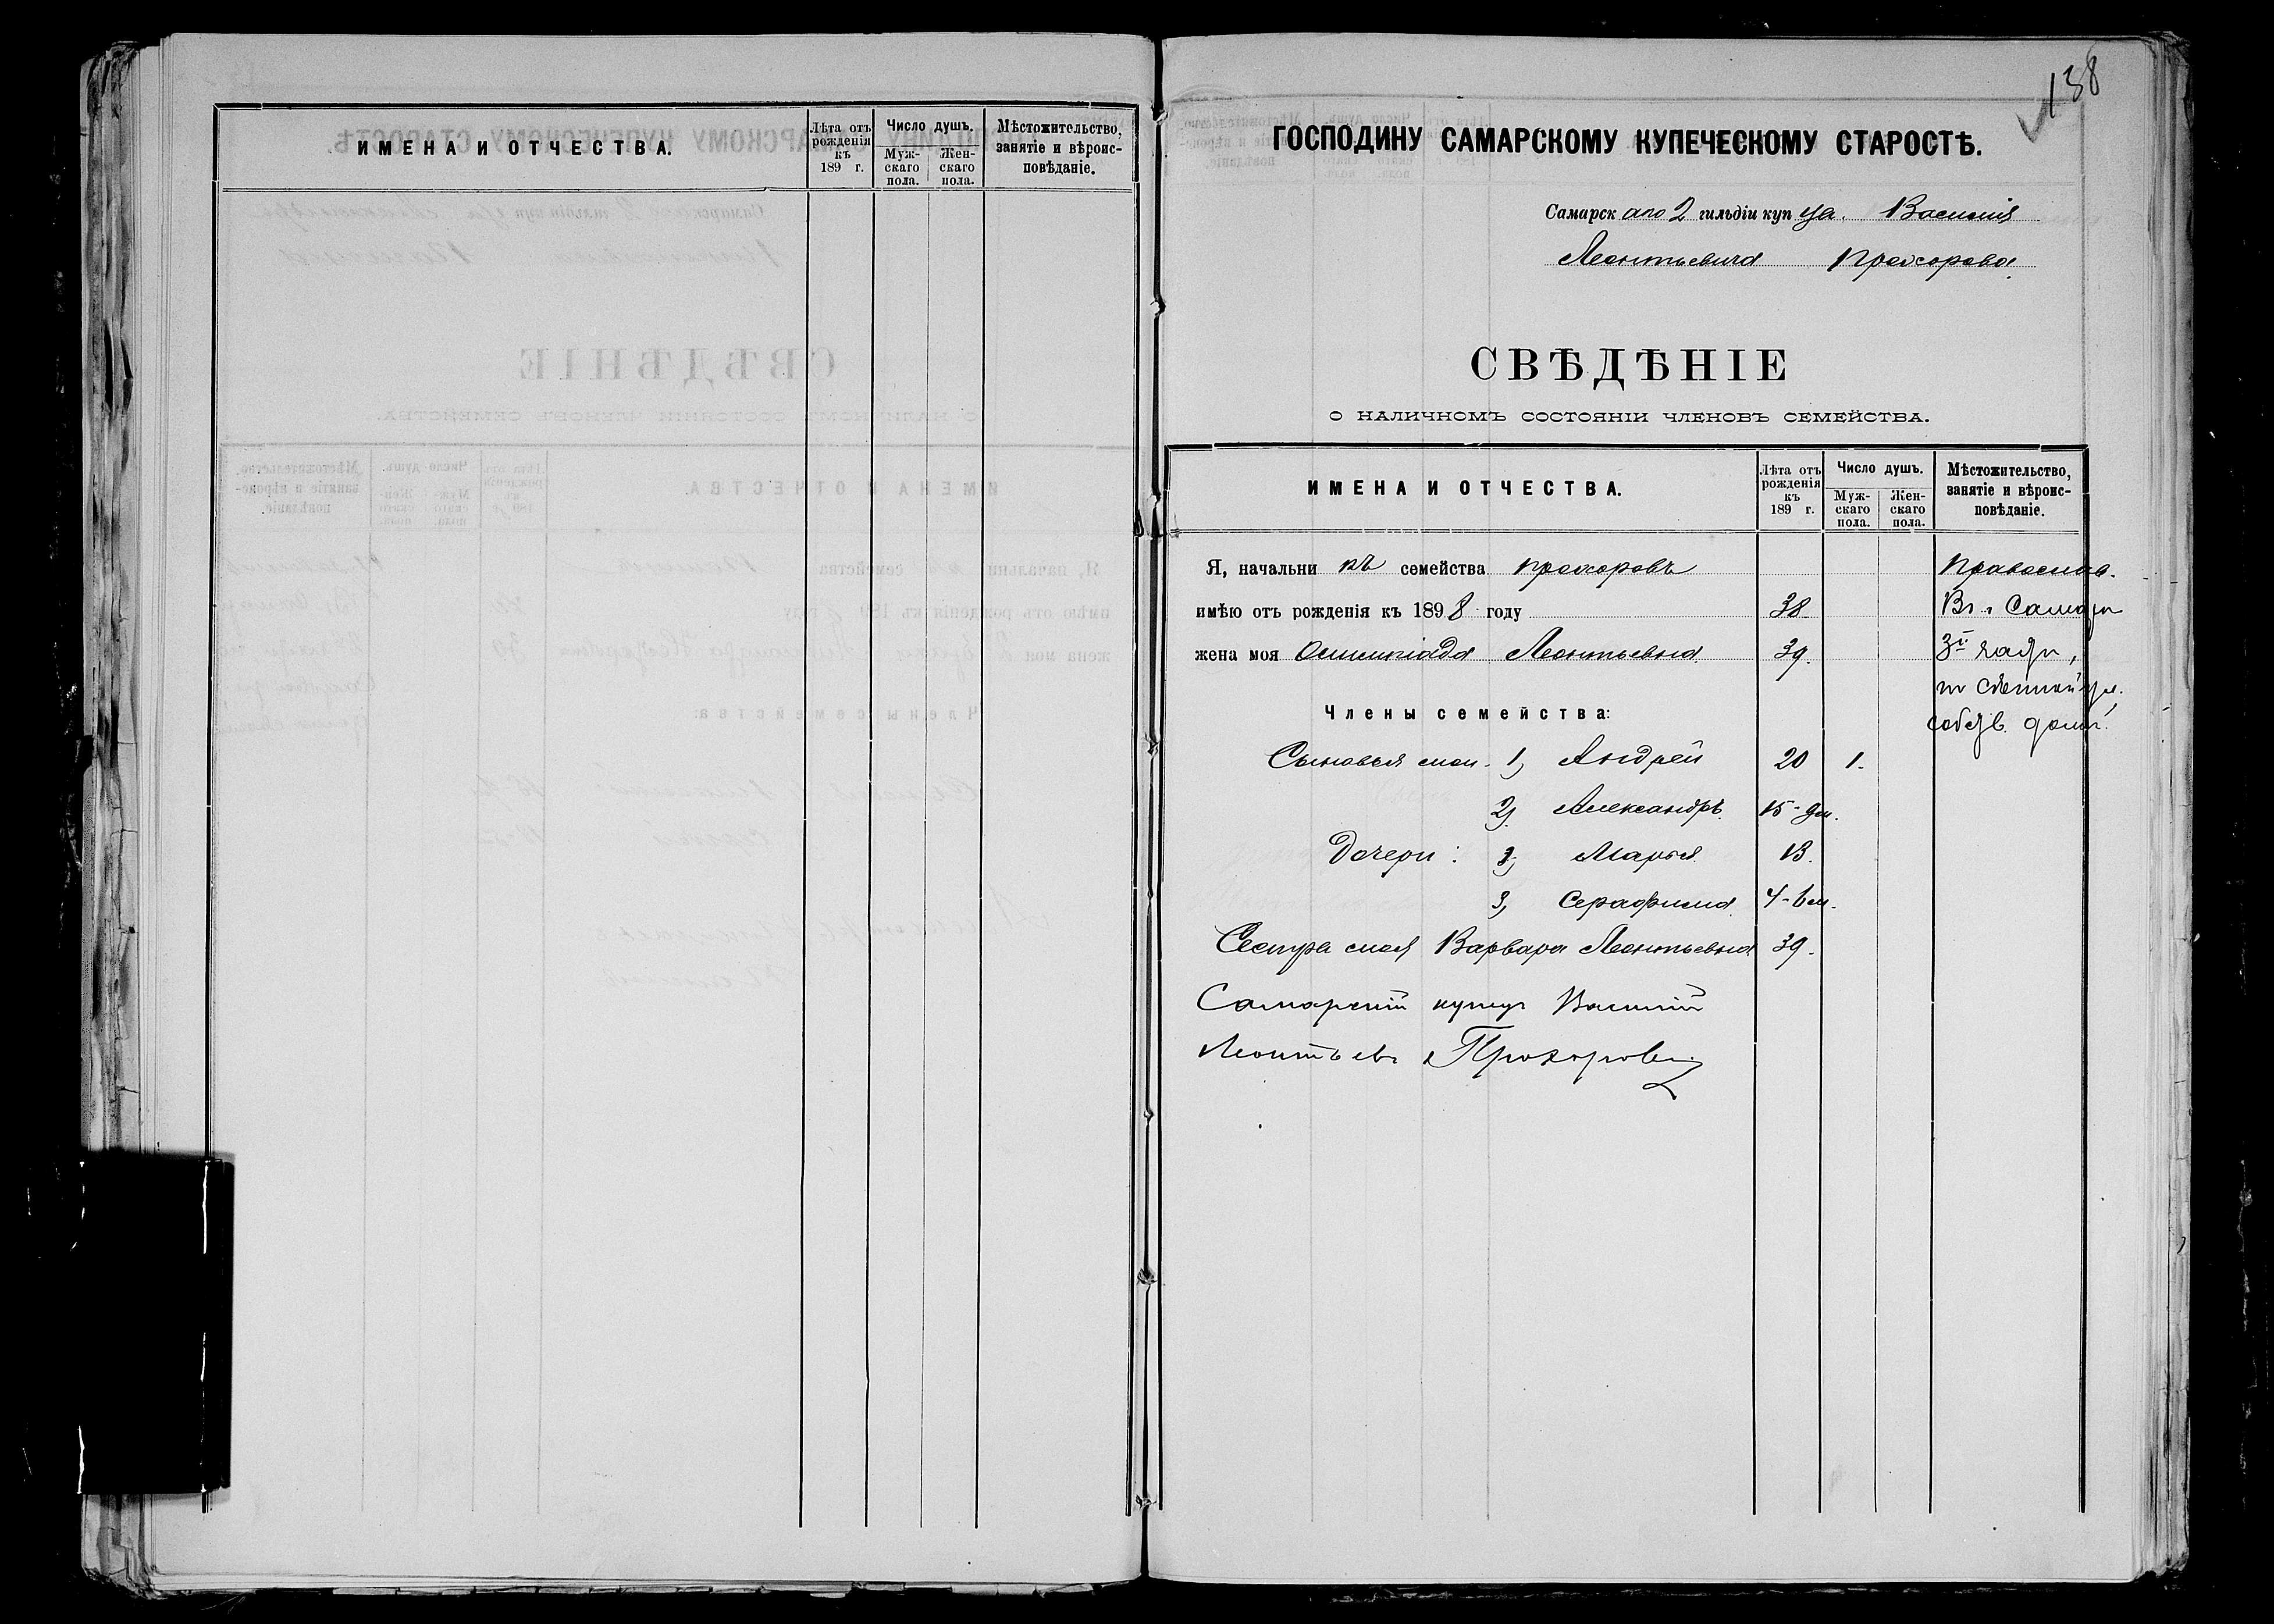 ИМЕНА И ОТЧЕСТВА.
Лѣта отъ рожденія къ 189 г.
Число душъ.
Мужскаго пола.
Женскаго пола.
Мѣстожительство, занятіе и вѣроисповѣданіе.
138
ГОСПОДИНУ САМАРСКОМУ КУПЕЧЕСКОМУ СТАРОСТѢ.
Самарскаго 2 гильдіи купца Василія
Леонтьевича Прохорова.
СВѢДѢНІЕ
О НАЛИЧНОМЪ СОСТОЯНІИ ЧЛЕНОВЪ СЕМЕЙСТВА.
ИМЕНА И ОТЧЕСТВА.
Лѣта отъ рожденія къ 189 г.
Число душъ.
Мужскаго пола.
Женскаго пола.
Мѣстожительство, занятіе и вѣроисповѣданіе.
Я, начальникъ семейства Прохоровъ Православ.
имѣю отъ рожденія къ 1898 году 38. Въ г. Самарѣ
жена моя Олимпіада Леонтьевна 39. 3й части,
Члены семейства:
собств. домъ.
Сыновья мои 1, Андрей 20 1.
2, Александръ 15-9м.
Дочери: Марья 13.
3, Серафима 4-6м.
Сестра моя Варвара Леонтьевна 39.
Самарскій купецъ Василій
Леонтьевъ Прохоровъ